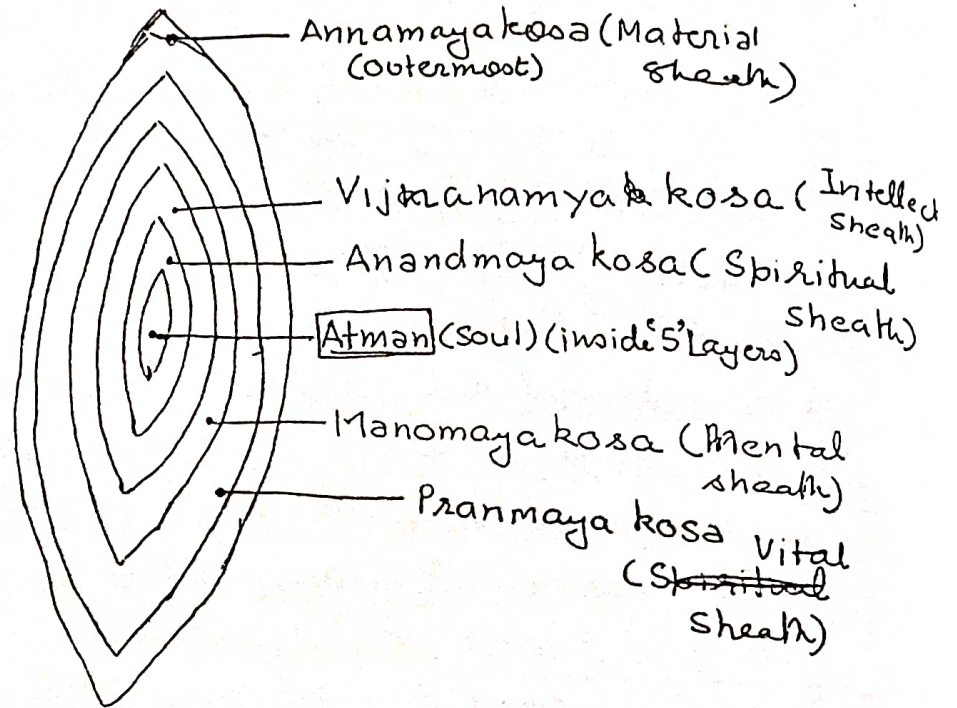 Annamaya kosa (Material
(outermost) sheath)
Vijnanamya kosa (Intellect
sheath)
Anandmaya kosa (Spiritual
sheath)
Atman (soul) (inside '5' Layers)
Manomaya kosa (Mental
sheath)
Pranmaya kosa Vital
(Spiritual
sheath)